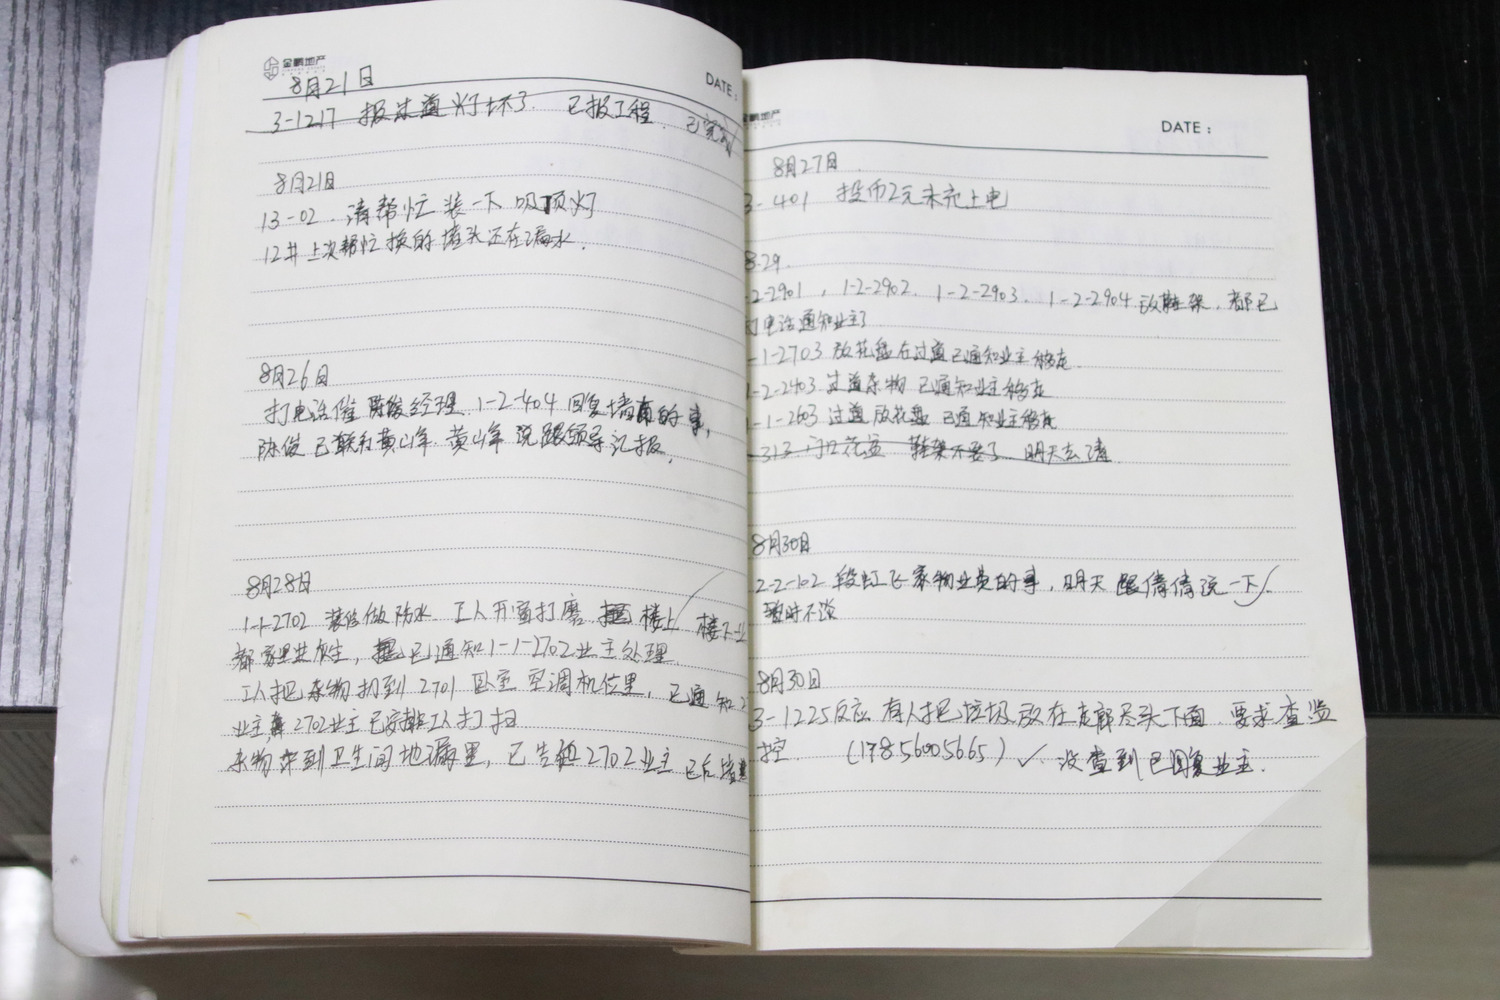 金鹏地产
DATE:
8月21日
3-1217 报过道灯坏了. 已报工程. 已完成
8月21日
13-02. 请帮忙装一下吸顶灯
12# 上次帮忙换的堵头还在漏水.
8月26日
打电话催陈俊经理. 1-2-404 回复墙面的事,
陈俊已联系黄山峰. 黄山峰说跟领导汇报.
8月28日
1-1-2702 装修做防水. 工人开窗打磨. 楼上/楼下
都家里共灰尘, 已通知1-1-2702业主处理.
工人把杂物扔到 2701 卧室空调机位里, 已通知
业主 2702业主已安排工人打扫
杂物弄到卫生间地漏里, 已告知2702业主 已后
金鹏地产
DATE:
8月27日
3-401 投币2元未充上电
8.29.
-2-2901, 1-2-2902. 1-2-2903. 1-2-2904 放鞋架. 都已
打电话通知业主了
-1-2703 放花盆在过道已通知业主移走
1-2-2403 过道杂物 已通知业主移走
-1-2603 过道放花盆 已通知业主移走
-313 门口花盆 鞋架不要了. 明天去清.
8月30日
2-2-102 段虹飞家物业费的事, 明天跟倩倩说一下
暂时不谈
8月30日
3-1225反应有人把垃圾放在走廊尽头下面. 要求查监
控 (17856005665) ✓. 没查到已回复业主.